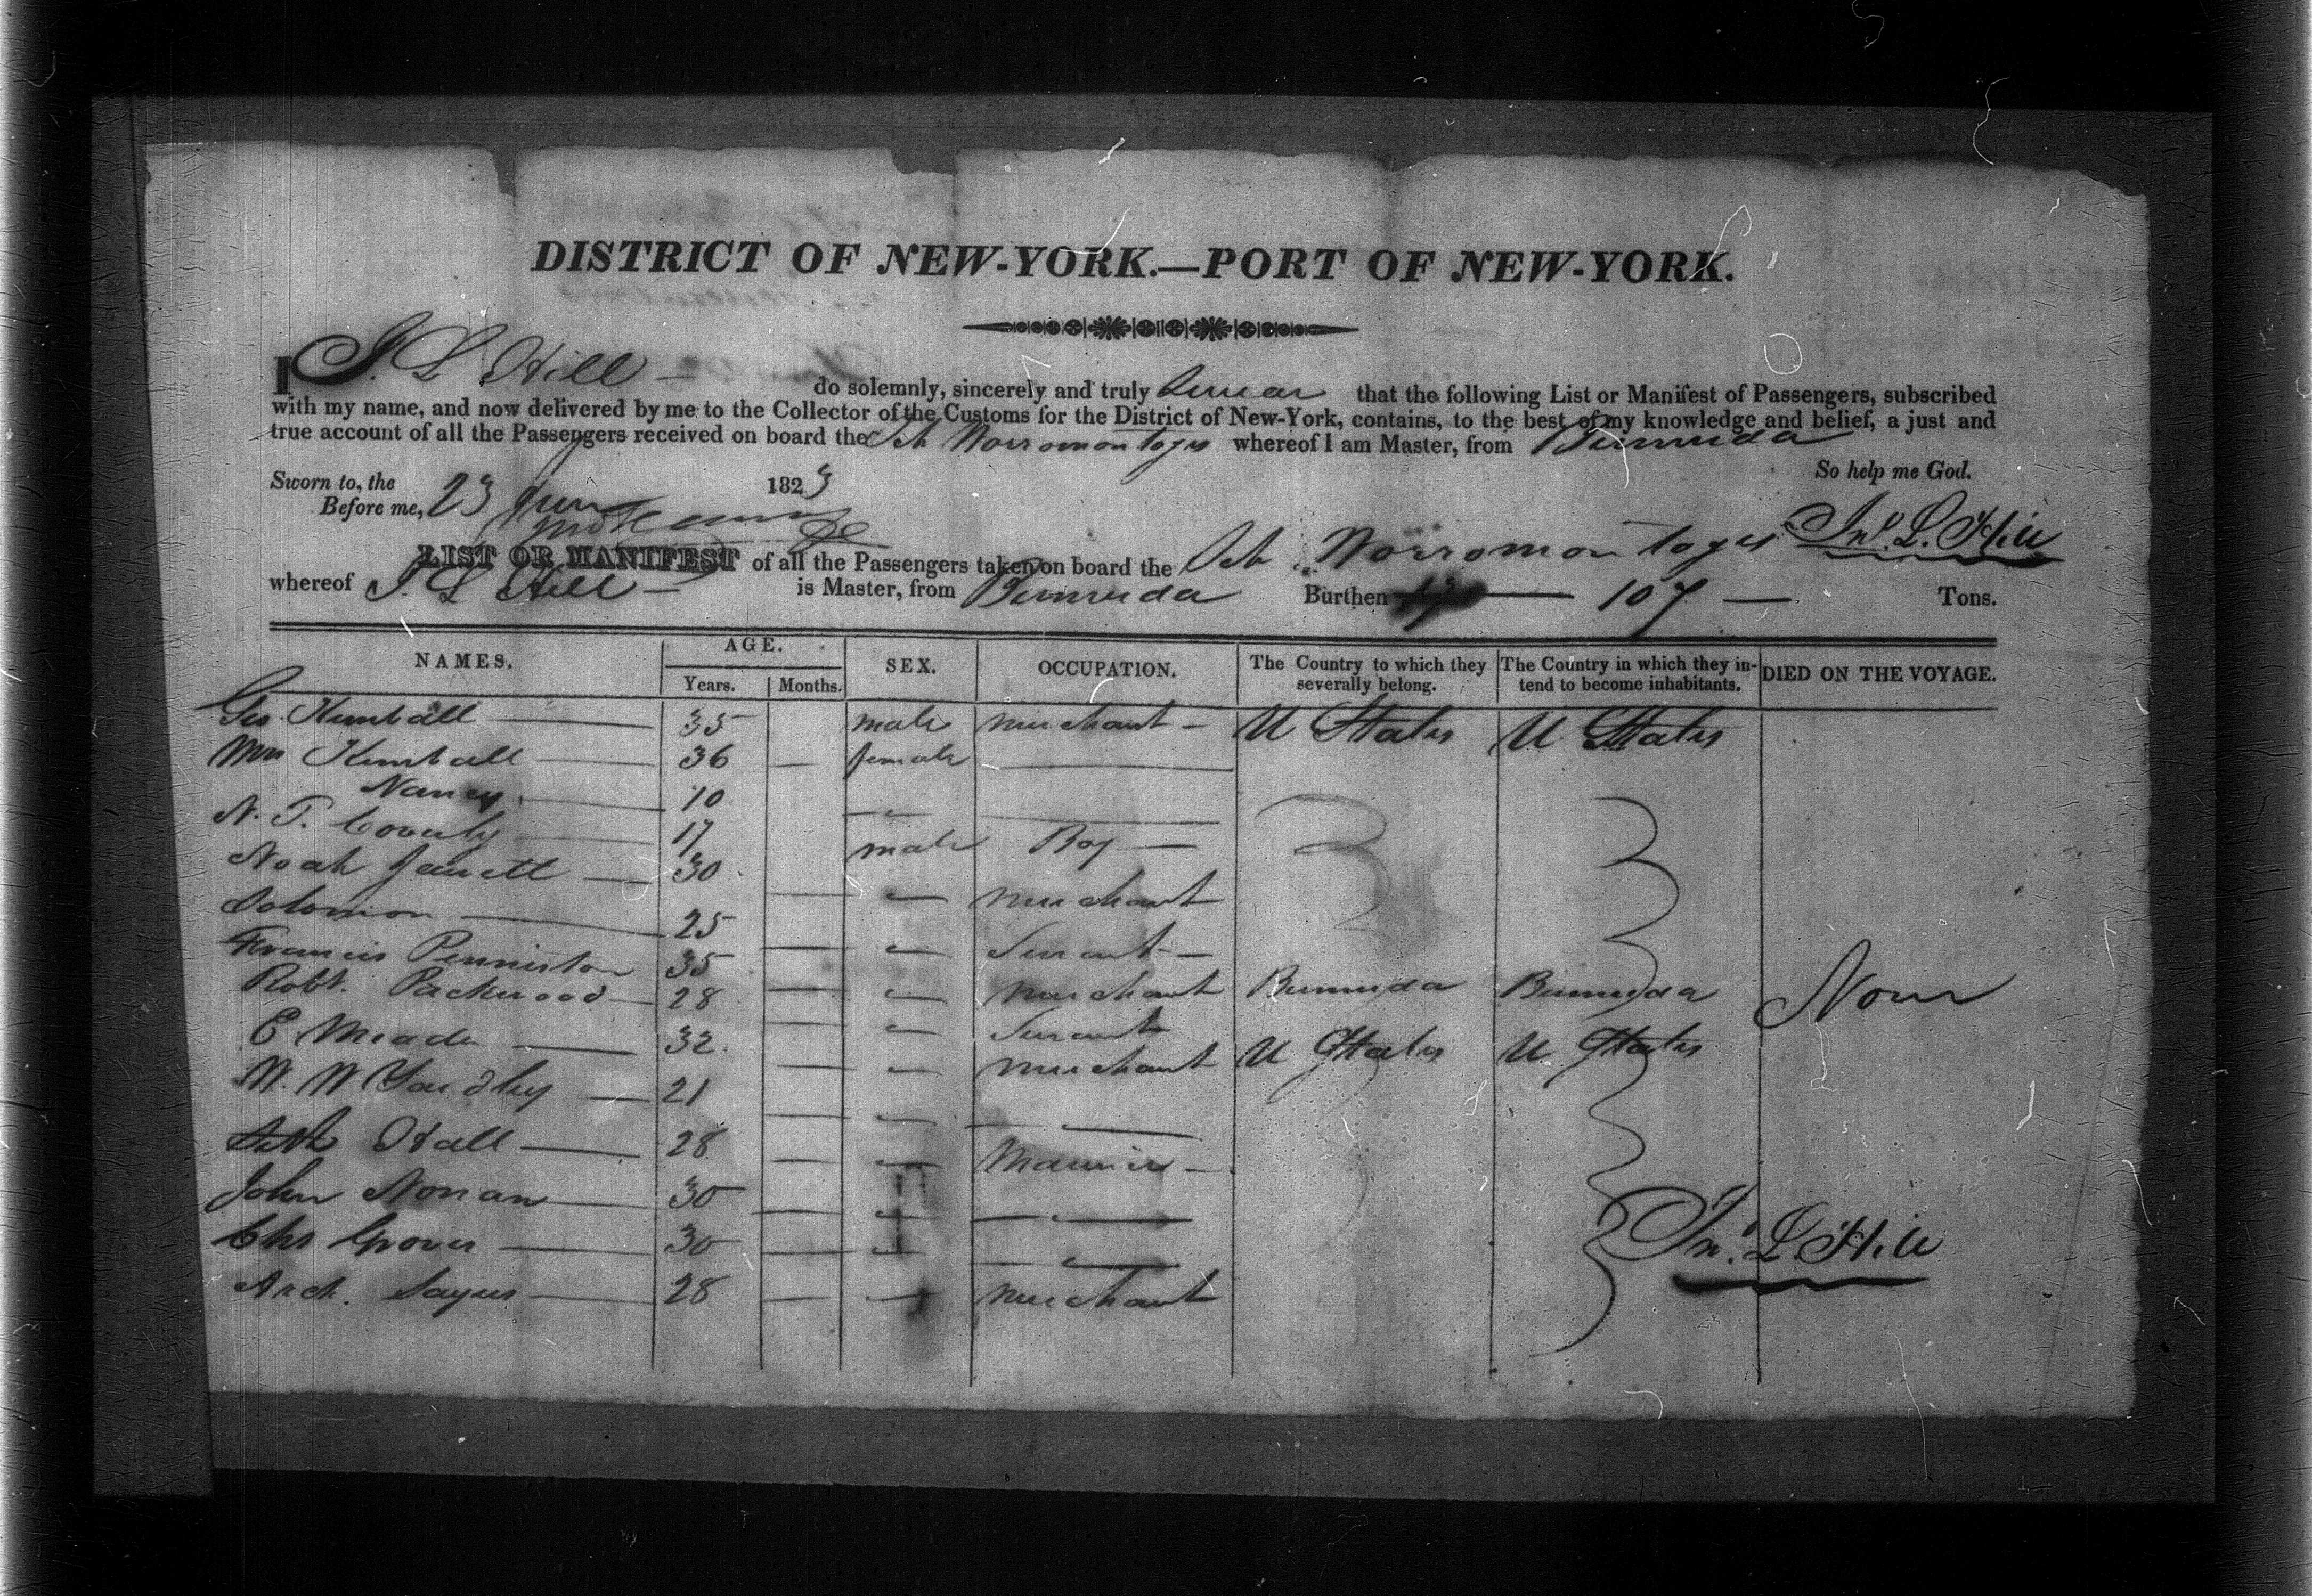 DISTRICT OF NEW-YORK.—PORT OF NEW-YORK.
I J. L Hill — do solemnly, sincerely and truly swear that the following List or Manifest of Passengers, subscribed
with my name, and now delivered by me to the Collector of the Customs for the District of New-York, contains, to the best of my knowledge and belief, a just and
true account of all the Passengers received on board the Sch Norromontoges whereof I am Master, from Bermuda
So help me God.
Sworn to, the 23 June 1823
Before me,
Jno. L. Hill
LIST OR MANIFEST of all the Passengers taken on board the Sch Norromontoges
whereof J. L Hill — is Master, from Bermuda Burthen — 107 — Tons.
NAMES. AGE. Years. Months. SEX. OCCUPATION. The Country to which they severally belong. The Country in which they intend to become inhabitants. DIED ON THE VOYAGE.
Geo. Kimball — 35 male merchant — U States U States
Mrs Kimball — 36 — female —
Nancy — 10 — —
N. T. 17 male Boy —
Noah Jewett — 30 — — merchant
Solomon — 25 — — Servant —
Francis Penniston 35 — — merchant Bermuda Bermuda None
Robt. Packwood — 28 — — Servant
E Meade — 32 — — merchant U States U States
W. W — 21 — — —
Seth Hall — 28 — — Mariner —
John Nonan — 30 — — —
Chs Grover — 30 — — —
Arch. Sayres — 28 — — merchant
Jno. L. Hill